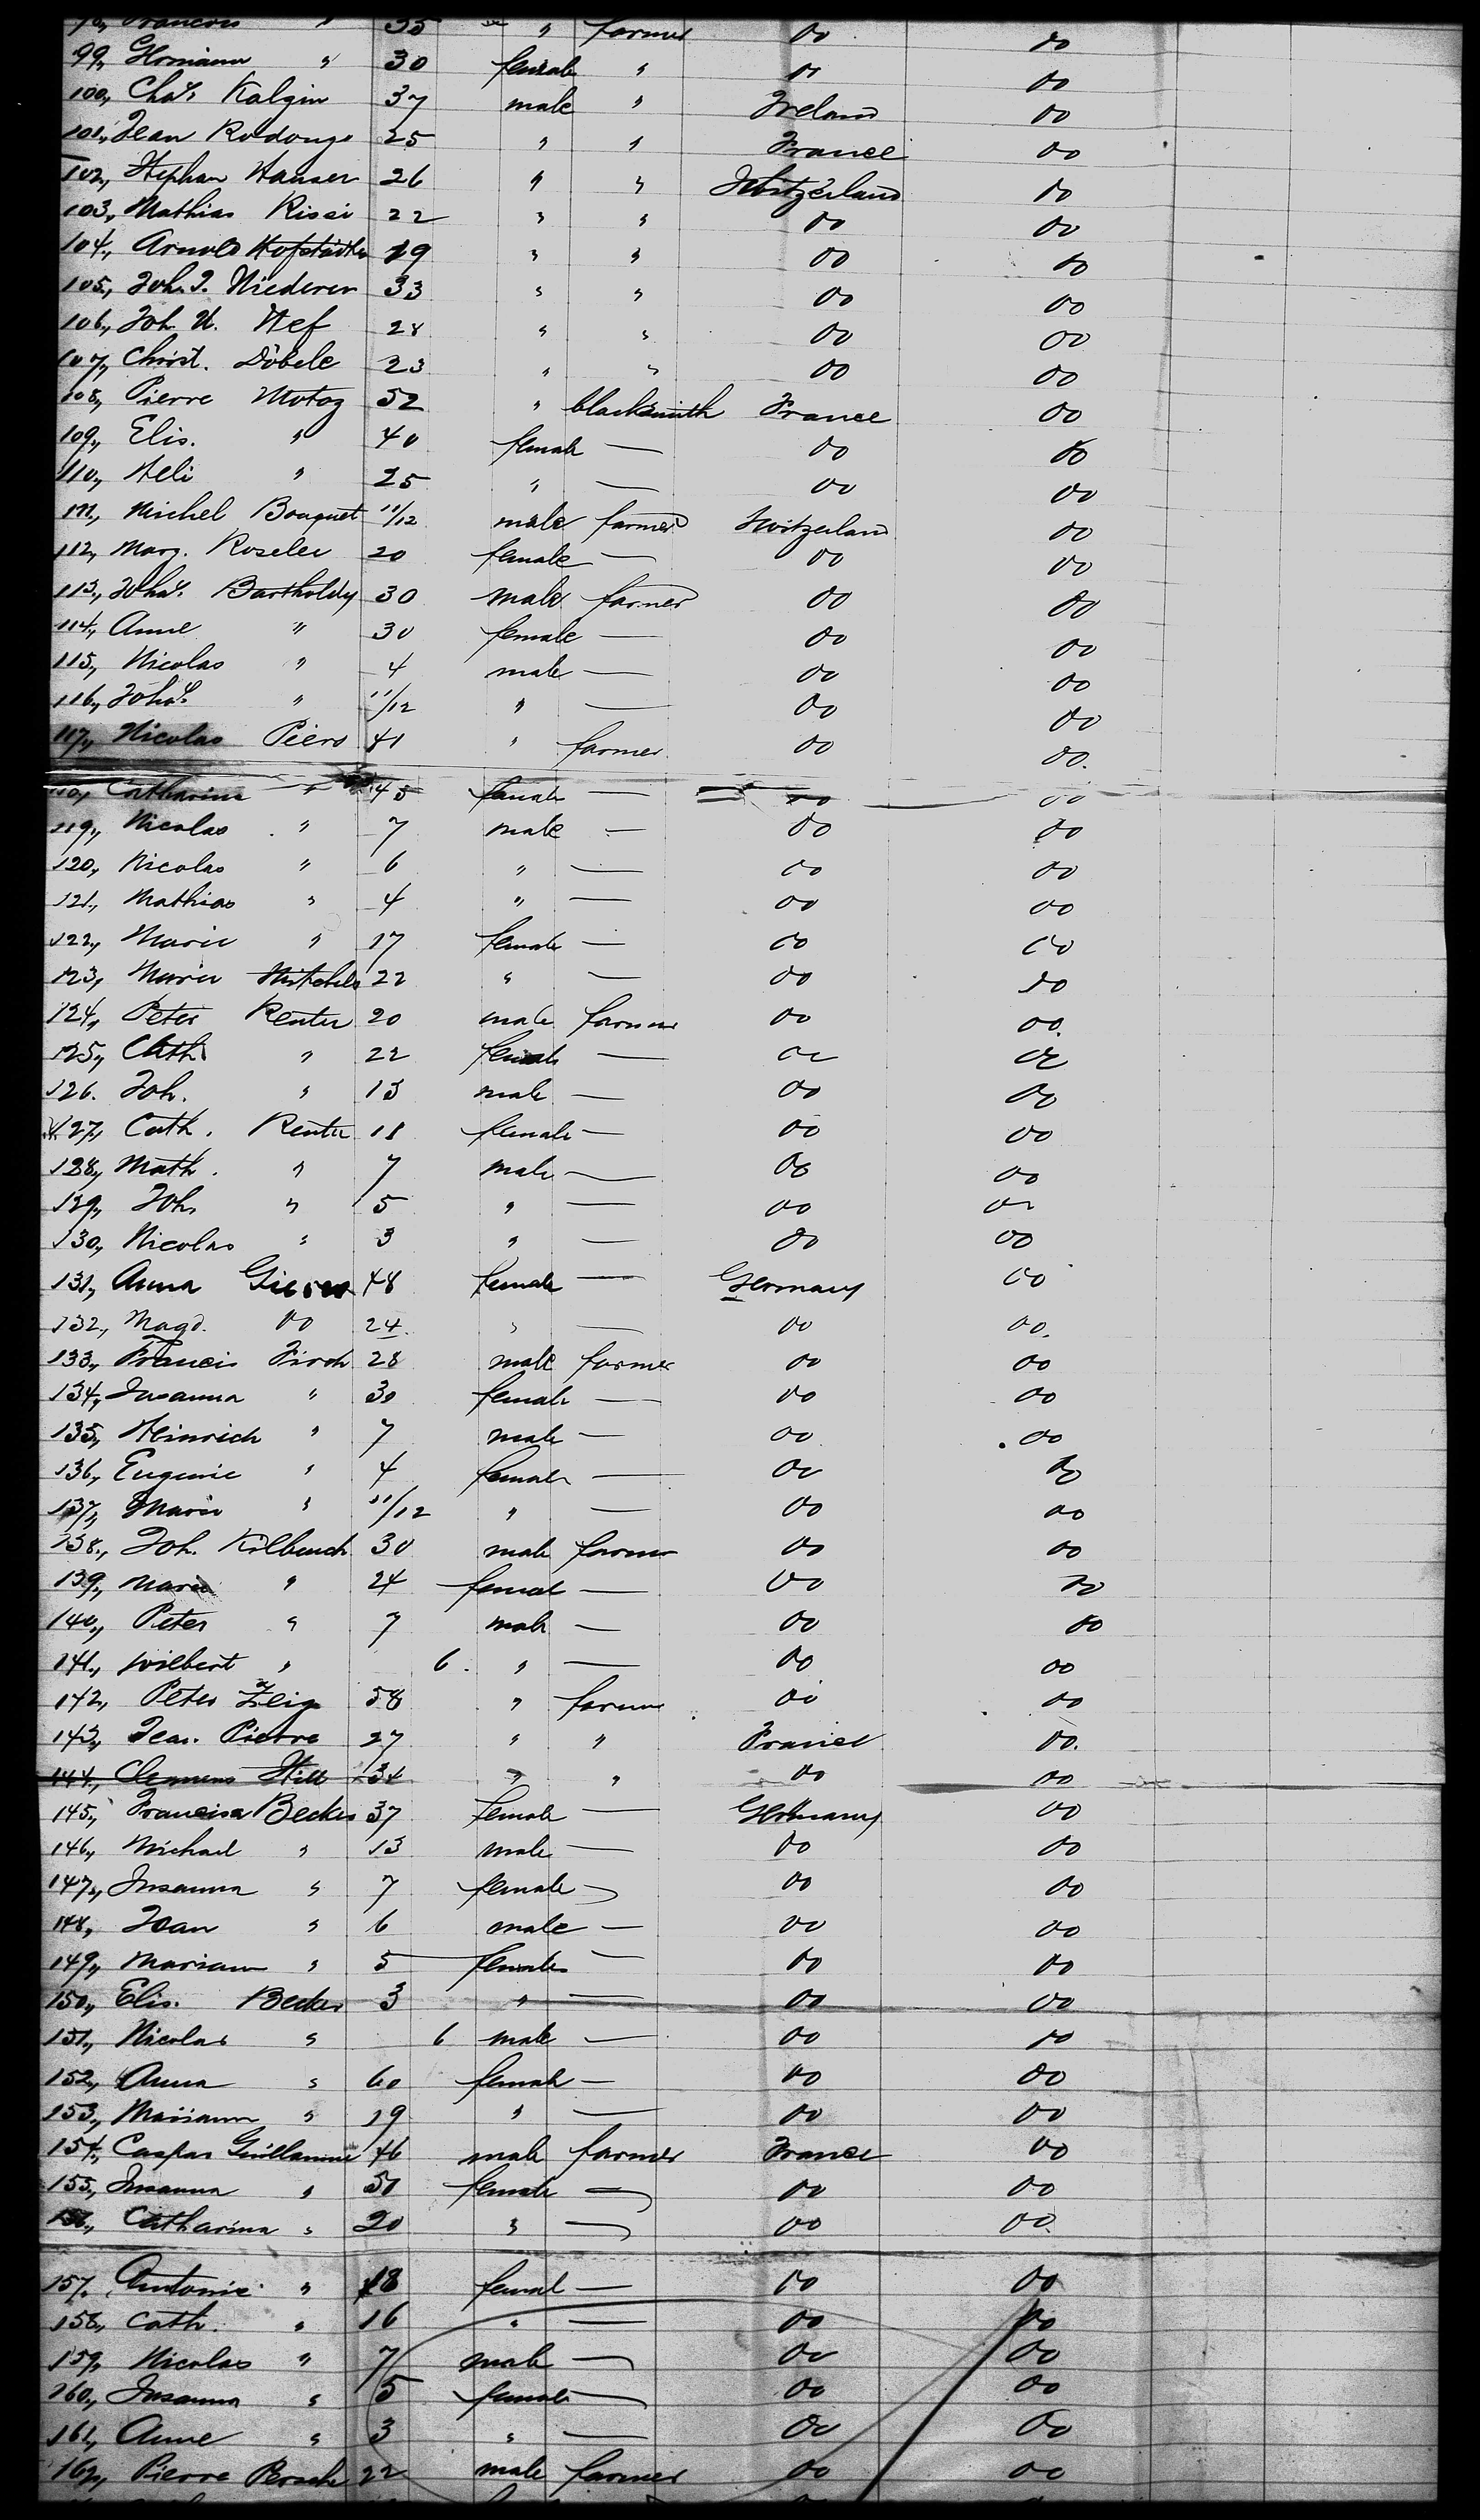 98, Francois " 35 " farmer do do
99, " 30 female " do do
100, Chas. Kalgin 37 male " Ireland do
101, Jean Rodonge 25 " " France do
102, Stephan Hauser 26 " " Switzerland do
103, Mathias Rissi 22 " " do do
104, Arnold Hofstädter 19 " " do do
105, Joh. J. Niederer 33 " " do do
106, Joh. U. Nef 28 " " do do
107, Christ. Döbele 23 " " do do
108, Pierre Motog 52 " blacksmith France do
109, Elis. " 40 female — do do
110, Heli " 25 " — do do
111, Michel Bouquet 11/12 male farmer Switzerland do
112, Marg. Roseler 20 female — do do
113, Johas. Bartholdy 30 male farmer do do
114, Anne " 30 female — do do
115, Nicolas " 4 male — do do
116, Johas. " 11/12 " — do do
117, Nicolas Piers 41 " farmer do do.
118, Catharina " 45 female — do do
119, Nicolas " 7 male — do do
120, Nicolas " 6 " — do do
121, Mathias " 4 " — do do
122, Marie " 17 female — do do
123, Marie 22 " — do do
124, Peter Renter 20 male farmer do do.
125, Cath. " 22 female — do do
126. Joh. " 13 male — do do
127, Cath. Renter 11 female — do do
128, Math. " 7 male — do do
129, Joh. " 5 " — do do
130, Nicolas " 3 " — do do
131, Anna 48 female — Germany do
132, Magd. do 24 " — do do.
133, Francis Firch 28 male farmer do do
134, Susanna " 30 female — do do
135, Heinrich " 7 male — do do
136, Eugenie " 4 female — do do
137, Marie " 11/12 " — do do
138, Joh. Kilbusch 30 male farmer do do
139, Marie " 24 female — do do
140, Peter " 7 male — do do
141, Wilbert " 6. " — do do
142, Peter Zeig 58 " farmer do do
143, Jean Pierre 27 " " France do.
144, Clemens Still 34 " " do do
145, Francisca Becker 37 female — Germany do
146, Michael " 13 male — do do
147, Susanna " 7 female — do do
148, Jean " 6 male — do do
149, Mariann " 5 female — do do
150, Elis. Becker 3 " — do do
151, Nicolas " 6 male — do do
152, Anna " 60 female — do do
153, Mariann " 19 " — do do
154, Caspar Guillaume 46 male farmer France do
155, Susanna " 50 female — do do
156, Catharina " 20 " — do do.
157, Antonie " 18 female — do do
158, Cath. " 16 " — do do
159, Nicolas " 7 male — do do
160, Susanna " 5 female — do do
161, Anne " 3 " — do do
162, Pierre Persch 22 male farmer do do